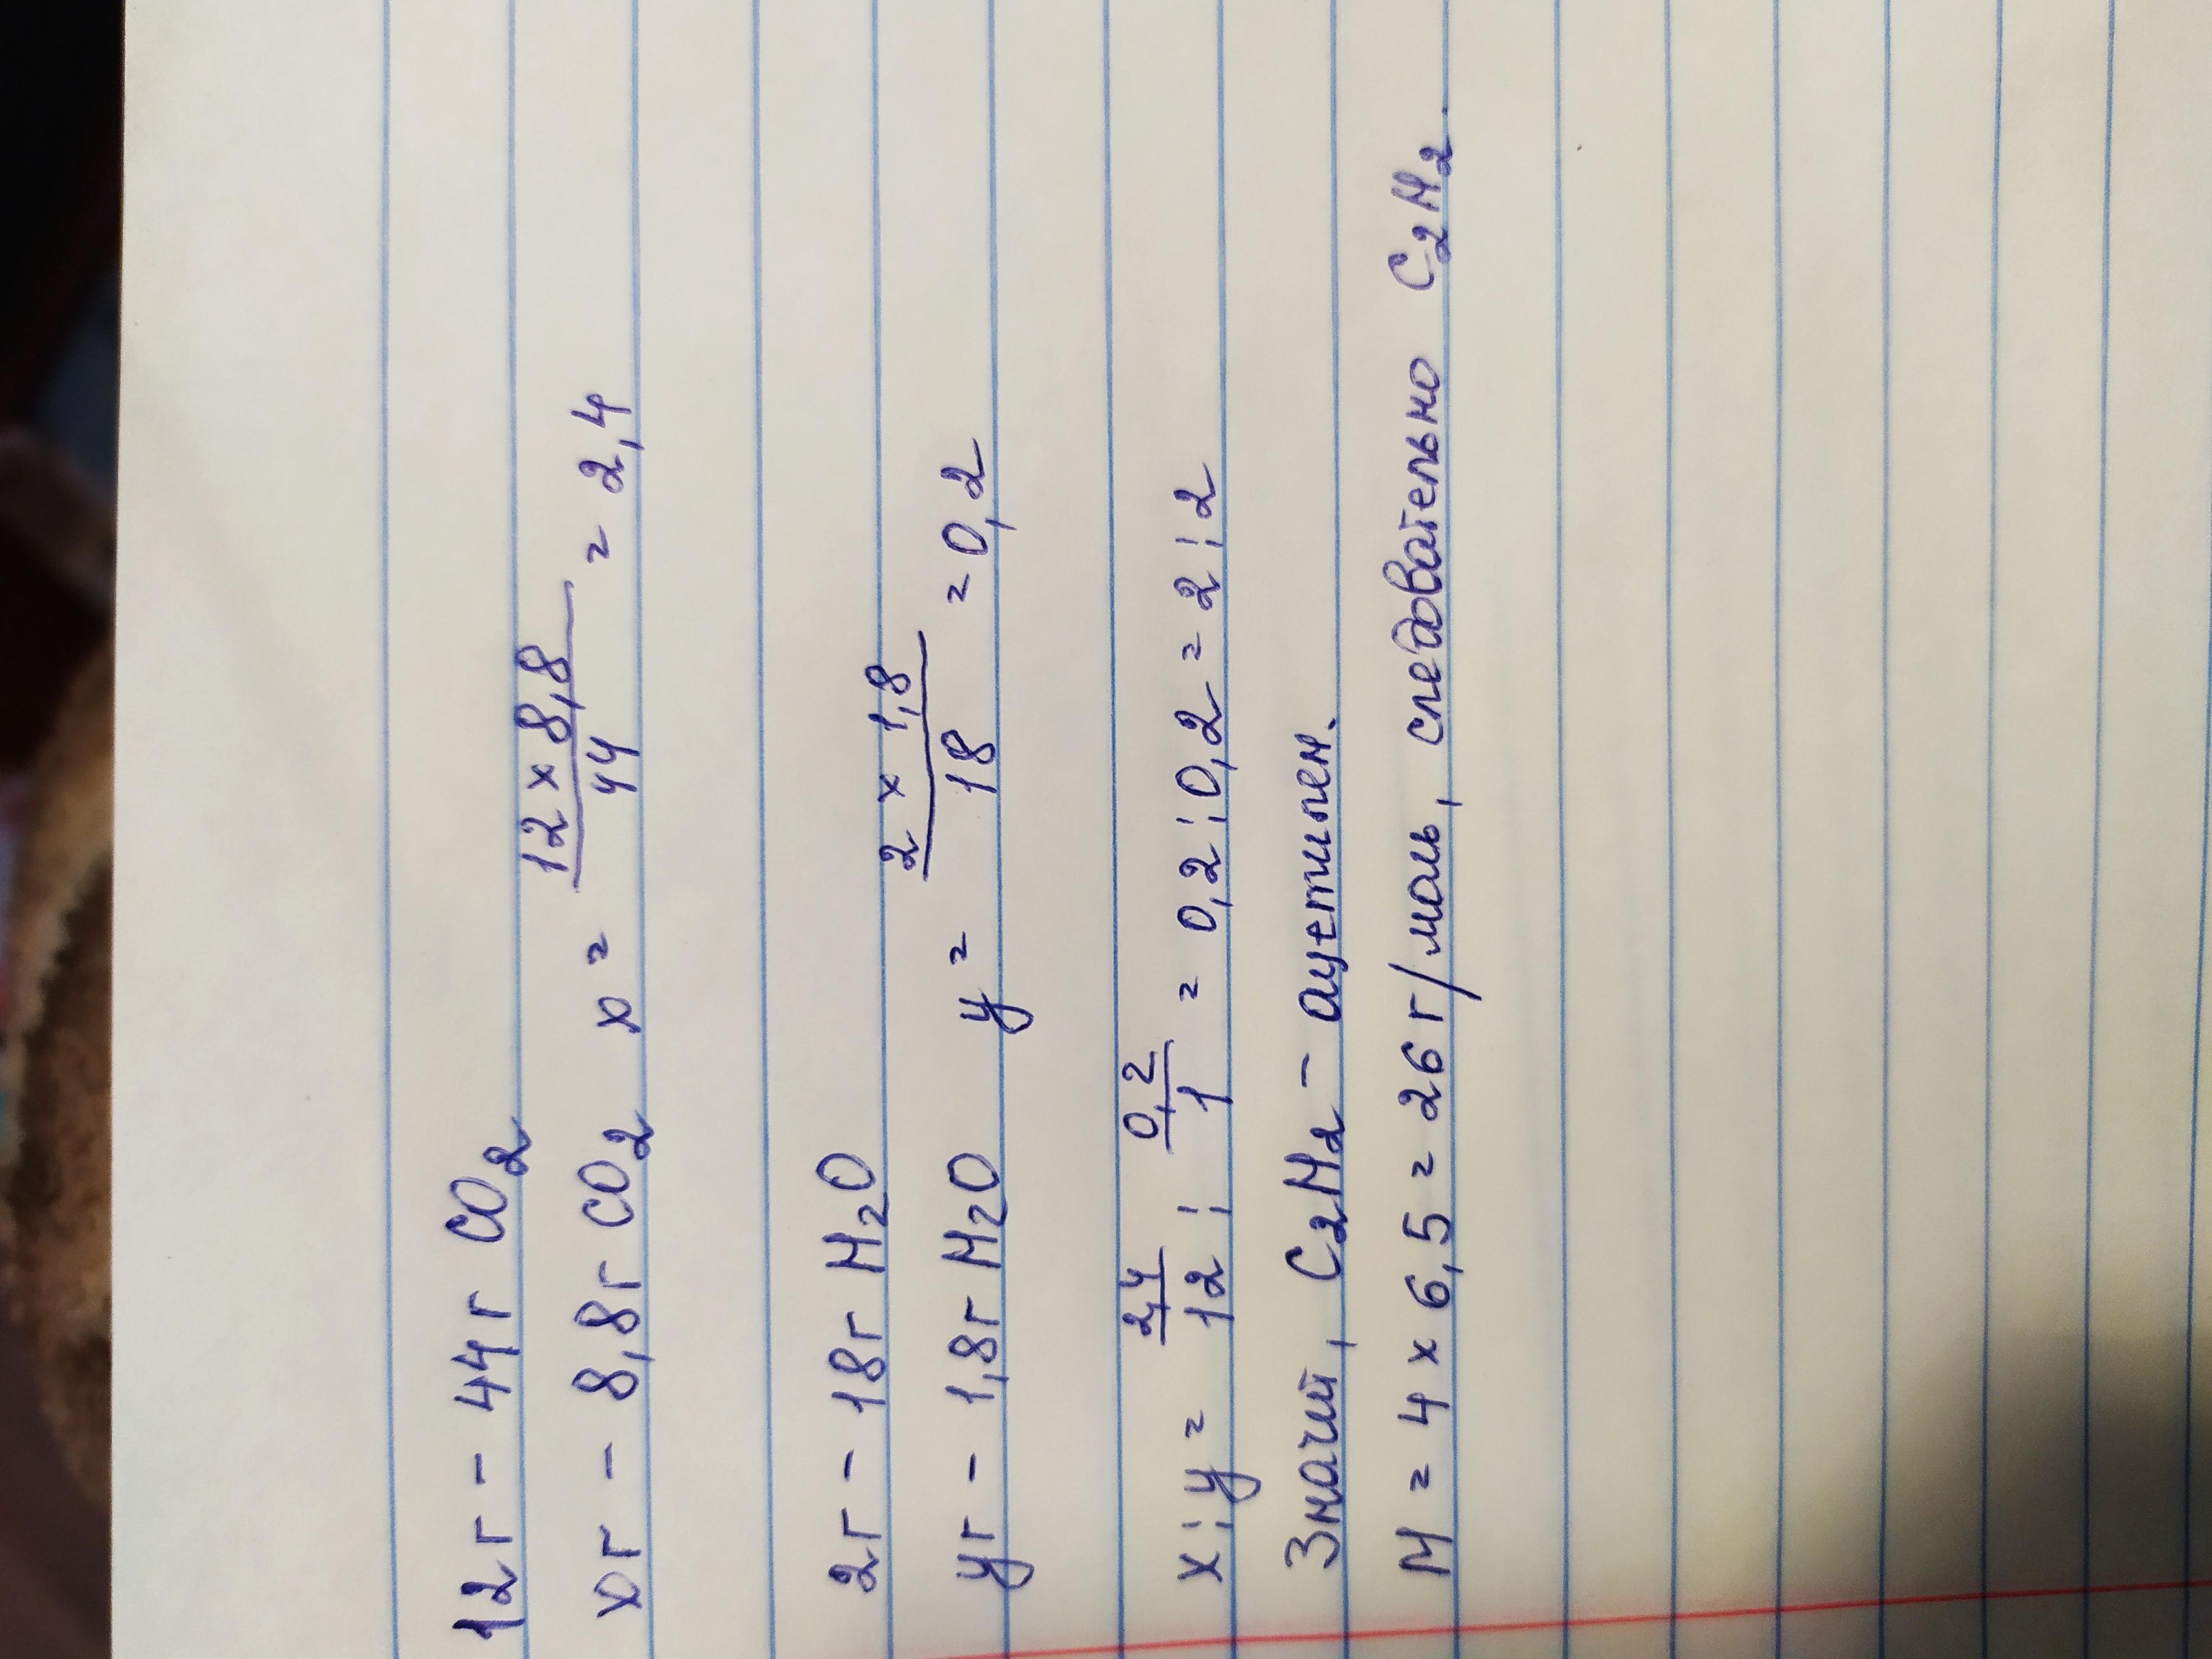 12г - 44г CO₂
xг - 8,8г CO₂ x = 12 x 8,8 / 44 = 2,4
2г - 18г H₂O
yг - 1,8г H₂O y = 2 x 1,8 / 18 = 0,2
x : y = 2,4 / 12 : 0,2 / 1 = 0,2 : 0,2 = 2 : 2
Значит, C₂H₂ - ацетилен.
M = 4 x 6,5 = 26 г/моль, следовательно C₂H₂.